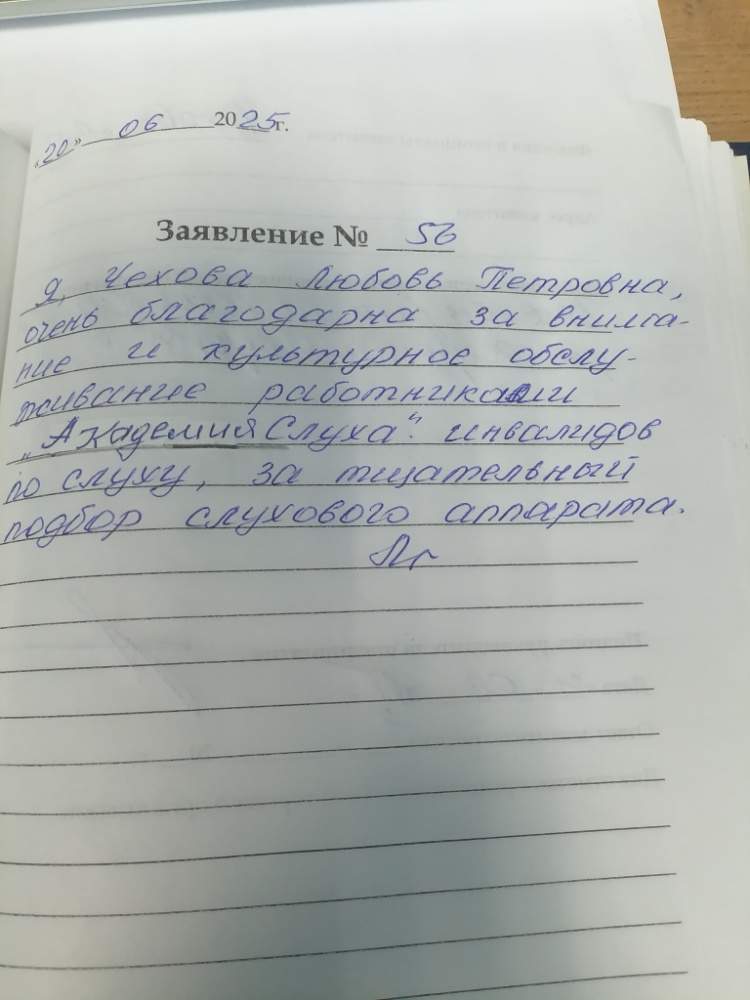 „20" 06 2025г.
Заявление № 56
Я, Чехова Любовь Петровна,
очень благодарна за внима-
ние и культурное обслу-
живание работниками
„Академия Слуха". инвалидов
по слуху, за тщательный
подбор слухового аппарата.